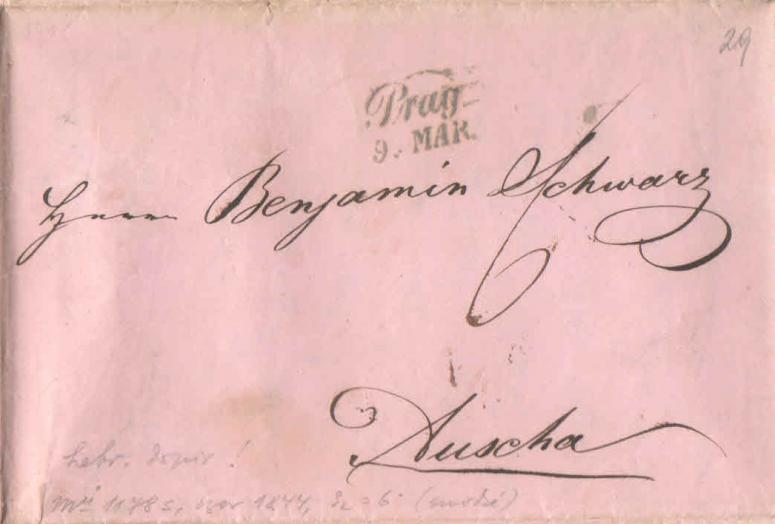 29
Prag
9. MAR.
Herrn Benjamin Schwarz
Auscha
hebr. dopis!
1844, 6